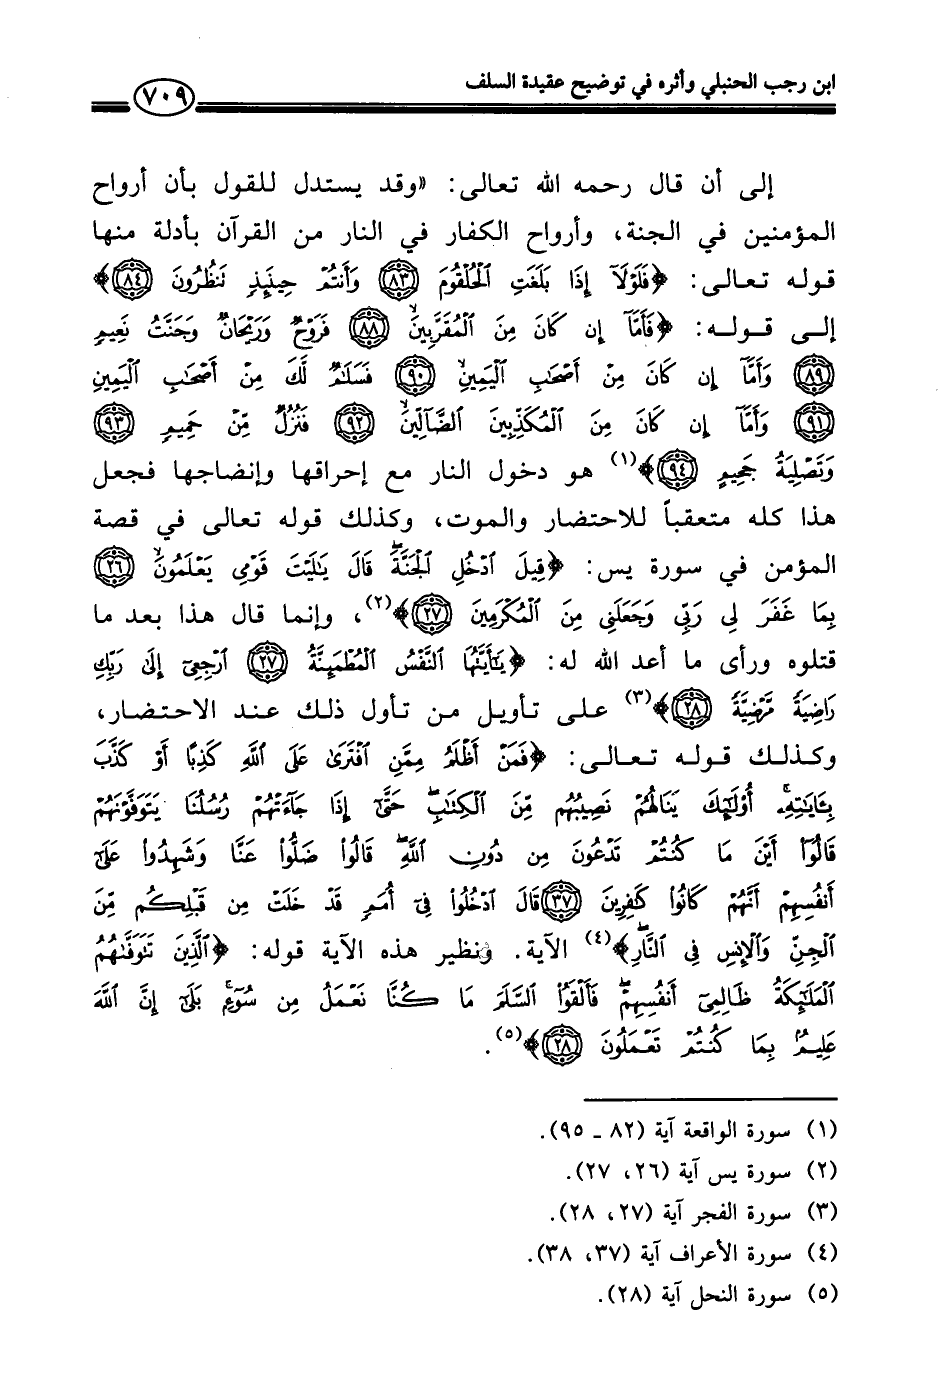 ابن رجب الحنبلي وأثره في توضيح عقيدة السلف
٧٠٩
إلى أن قال رحمه الله تعالى: «وقد يستدل للقول بأن أرواح
المؤمنين في الجنة، وأرواح الكفار في النار من القرآن بأدلة منها
قوله تعالى: ﴿فَلَوْلَآ إِذَا بَلَغَتِ الْحُلْقُومَ ﴿٨٣﴾ وَأَنتُمْ حِينَئِذٍ نَنظُرُونَ ﴿٨٤﴾﴾
إلى قوله: ﴿فَأَمَّآ إِن كَانَ مِنَ الْمُقَرَّبِينَ ﴿٨٨﴾ فَرَوْحٌ وَرَيْحَانٌ وَجَنَّتُ نَعِيمٍ
﴿٨٩﴾ وَأَمَّآ إِن كَانَ مِنْ أَصْحَٰبِ الْيَمِينِ ﴿٩٠﴾ فَسَلَٰمٌ لَّكَ مِنْ أَصْحَٰبِ الْيَمِينِ
﴿٩١﴾ وَأَمَّآ إِن كَانَ مِنَ الْمُكَذِّبِينَ الضَّآلِّينَ ﴿٩٢﴾ فَنُزُلٌ مِّنْ حَمِيمٍ ﴿٩٣﴾
وَتَصْلِيَةُ جَحِيمٍ ﴿٩٤﴾﴾(١) هو دخول النار مع إحراقها وإنضاجها فجعل
هذا كله متعقباً للاحتضار والموت، وكذلك قوله تعالى في قصة
المؤمن في سورة يس: ﴿قِيلَ ادْخُلِ الْجَنَّةَ قَالَ يَٰلَيْتَ قَوْمِي يَعْلَمُونَ ﴿٢٦﴾
بِمَا غَفَرَ لِي رَبِّي وَجَعَلَنِي مِنَ الْمُكْرَمِينَ ﴿٢٧﴾﴾(٢)، وإنما قال هذا بعد ما
قتلوه ورأى ما أعد الله له: ﴿يَٰٓأَيَّتُهَا النَّفْسُ الْمُطْمَئِنَّةُ ﴿٢٧﴾ ارْجِعِي إِلَىٰ رَبِّكِ
رَاضِيَةً مَّرْضِيَّةً ﴿٢٨﴾﴾(٣) على تأويل من تأول ذلك عند الاحتضار،
وكذلك قوله تعالى: ﴿فَمَنْ أَظْلَمُ مِمَّنِ افْتَرَىٰ عَلَى اللَّهِ كَذِبًا أَوْ كَذَّبَ
بِـَٔايَٰتِهِۦٓ أُو۟لَٰٓئِكَ يَنَالُهُمْ نَصِيبُهُم مِّنَ الْكِتَٰبِ حَتَّىٰٓ إِذَا جَآءَتْهُمْ رُسُلُنَا يَتَوَفَّوْنَهُمْ
قَالُوٓا۟ أَيْنَ مَا كُنتُمْ تَدْعُونَ مِن دُونِ اللَّهِ قَالُوا۟ ضَلُّوا۟ عَنَّا وَشَهِدُوا۟ عَلَىٰٓ
أَنفُسِهِمْ أَنَّهُمْ كَانُوا۟ كَٰفِرِينَ ﴿٣٧﴾ قَالَ ادْخُلُوا۟ فِىٓ أُمَمٍ قَدْ خَلَتْ مِن قَبْلِكُم مِّنَ
الْجِنِّ وَالْإِنسِ فِى النَّارِ﴾(٤) الآية. ونظير هذه الآية قوله: ﴿الَّذِينَ تَتَوَفَّىٰهُمُ
الْمَلَٰٓئِكَةُ ظَالِمِىٓ أَنفُسِهِمْ فَأَلْقَوُا۟ السَّلَمَ مَا كُنَّا نَعْمَلُ مِن سُوٓءٍ بَلَىٰٓ إِنَّ اللَّهَ
عَلِيمٌ بِمَا كُنتُمْ تَعْمَلُونَ ﴿٢٨﴾﴾(٥).
(١) سورة الواقعة آية (٨٢ ـ ٩٥).
(٢) سورة يس آية (٢٦، ٢٧).
(٣) سورة الفجر آية (٢٧، ٢٨).
(٤) سورة الأعراف آية (٣٧، ٣٨).
(٥) سورة النحل آية (٢٨).